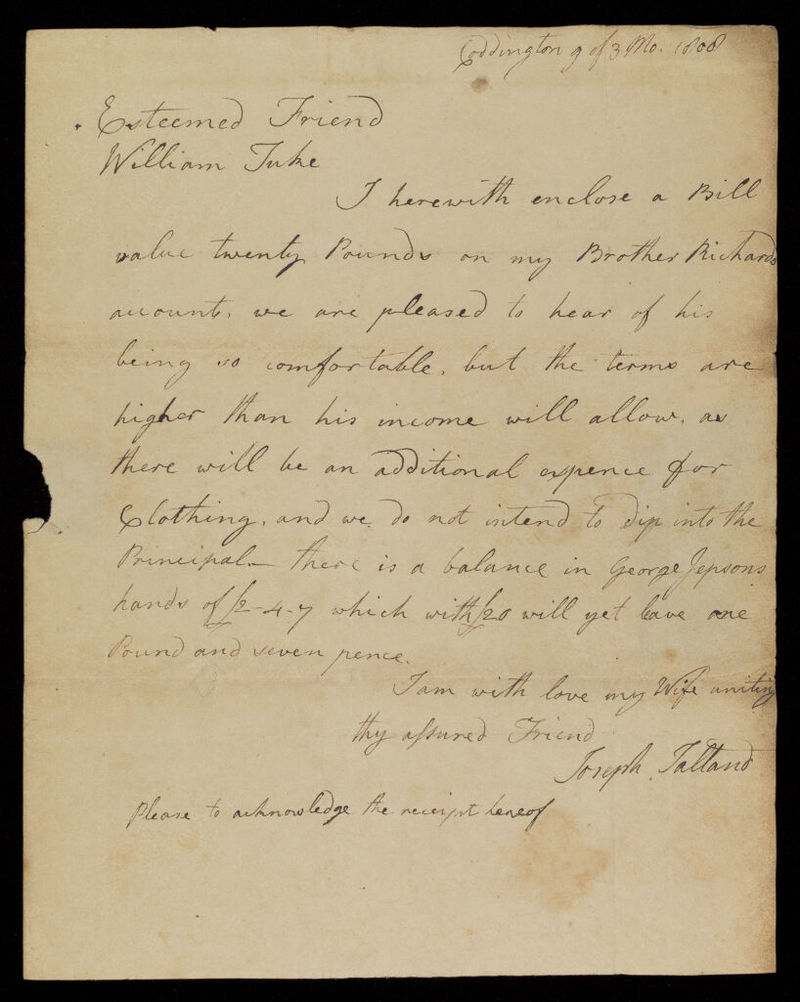 Coddington 9 of 3 Mo. 1808
Esteemed Friend
William Tuke
I herewith enclose a Bill
value twenty Pounds on my Brother Richards
account, we are pleased to hear of his
being so comfortable, but the terms are
higher than his income will allow, as
there will be an additional expence for
Clothing, and we do not intend to dip into the
Principal— there is a balance in George Jepsons
hands of £2-4-7 which with £20 will yet leave one
Pound and seven pence.
I am with love my Wife uniting
thy assured Friend
Joseph Tattand
Please to acknowledge the receipt hereof